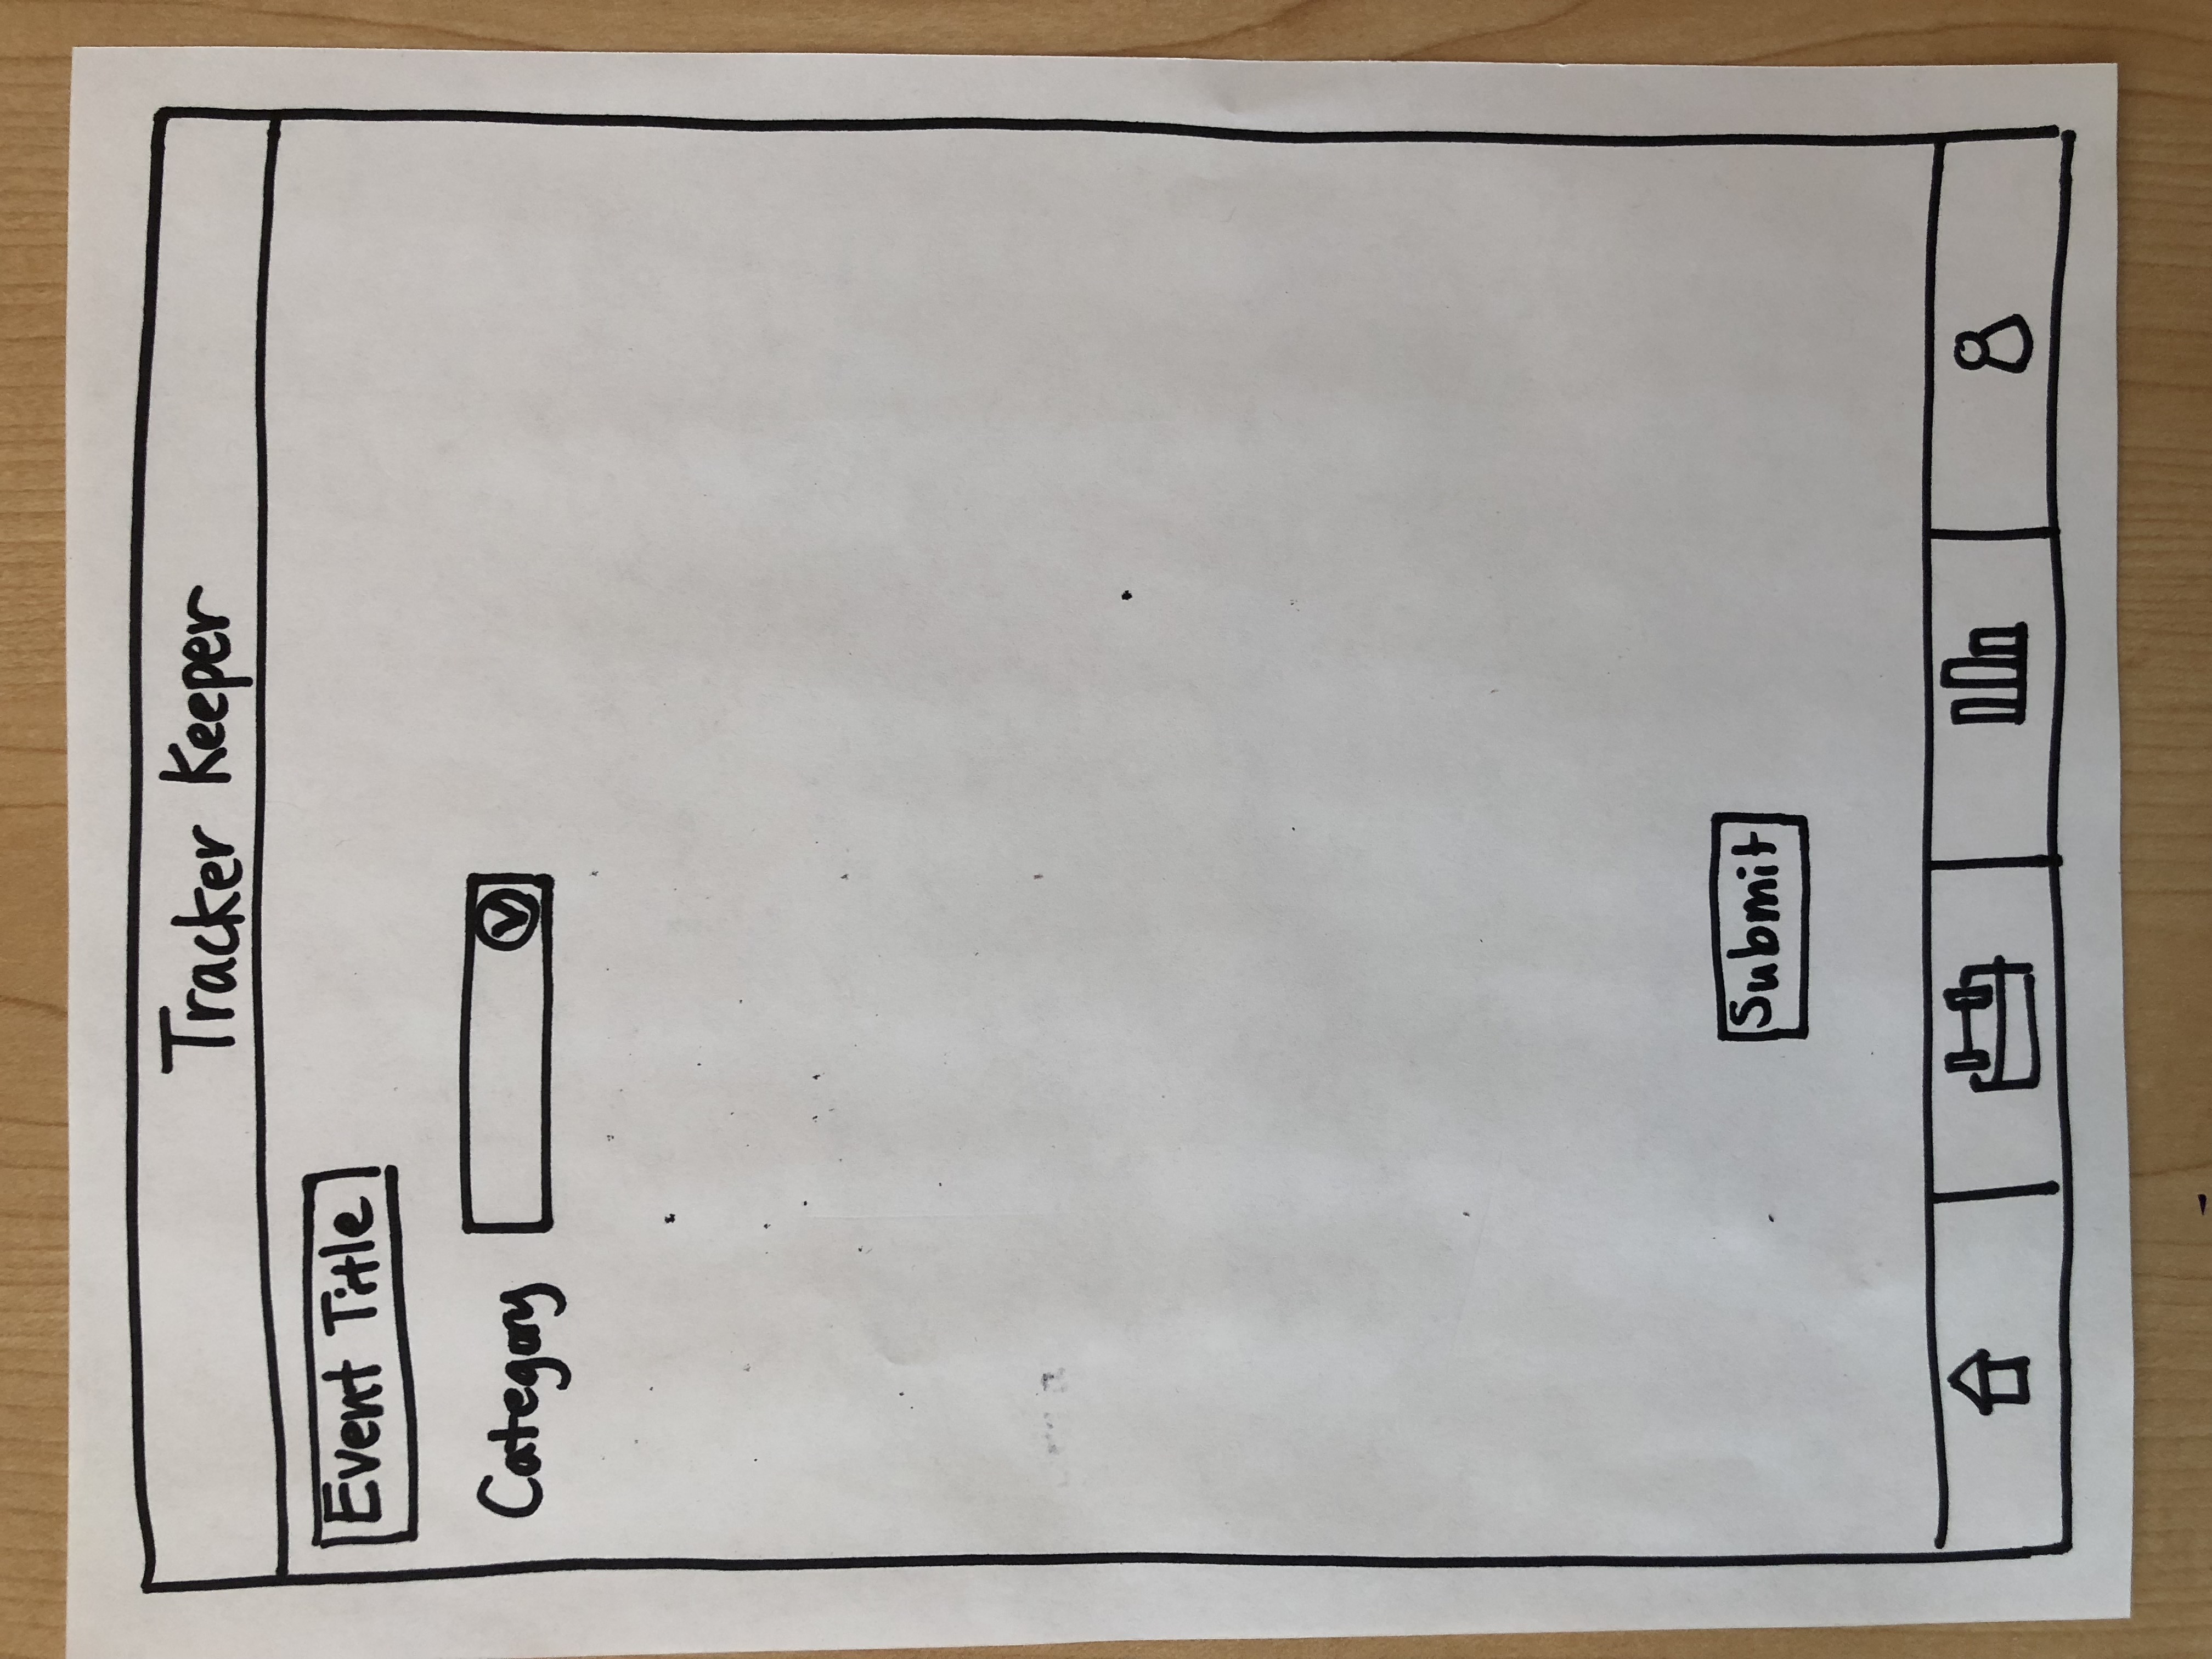 Tracker Keeper
Event Title
Category
Submit